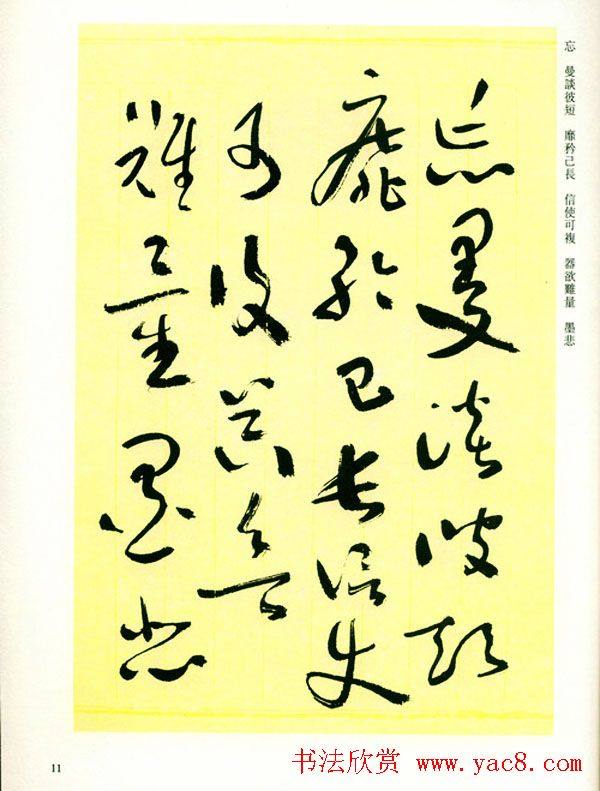 忘　曼談彼短　靡矜己長　信使可複　器欲難量　墨悲
忘曼談彼短
靡矜己長信使
可復器欲
難量墨悲
11
书法欣赏 www.yac8.com